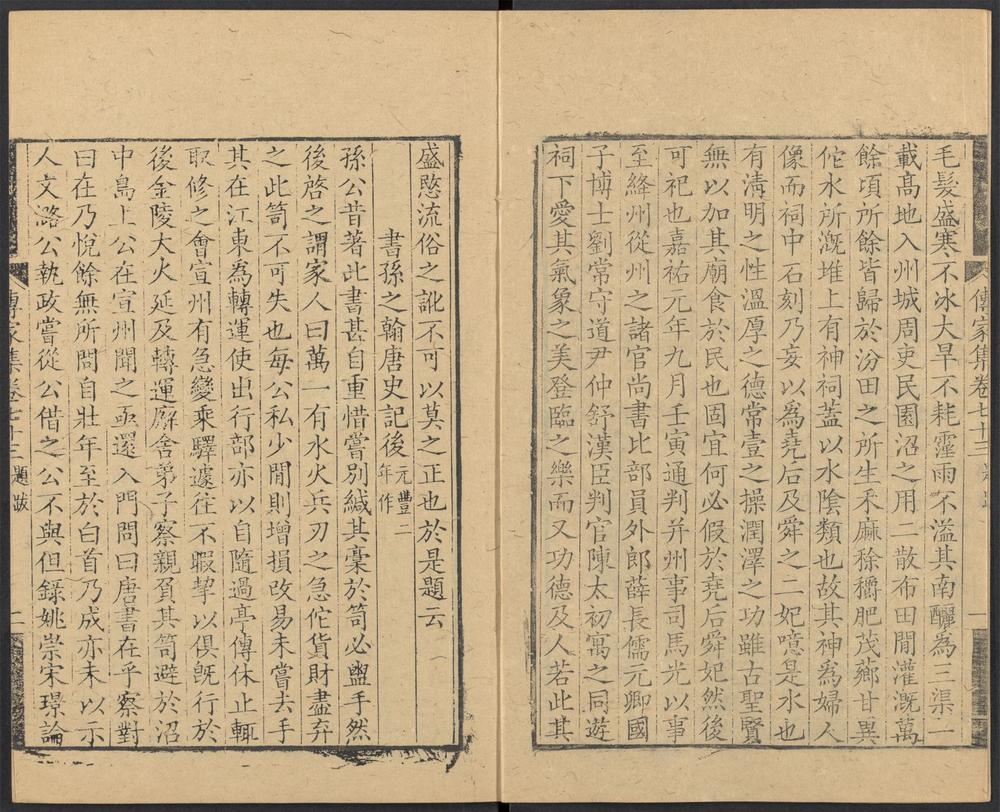 毛髮盛寒不冰大旱不耗霪雨不溢其南釃為三渠一
載髙地入州城周吏民園沼之用二散布田閒灌溉萬
餘頃所餘皆歸於汾田之所生禾麻稌穱肥茂薌甘異
佗水所溉堆上有神祠蓋以水陰類也故其神為婦人
像而祠中石刻乃妄以為堯后及舜之二妃噫是水也
有清明之性溫厚之德常壹之操潤澤之功雖古聖賢
無以加其廟食於民也固宜何必假於堯后舜妃然後
可祀也嘉祐元年九月壬寅通判并州事司馬光以事
至絳州從州之諸官尚書比部員外郎薛長儒元卿國
子博士劉常守道尹仲舒漢臣判官陳太初寓之同遊
祠下愛其氣象之美登臨之樂而又功德及人若此其
傳家集卷七十三
一
盛愍流俗之訛不可以莫之正也於是題云
書孫之翰唐史記後元豐二年作
孫公昔著此書甚自重惜嘗別緘其稾於笥必盥手然
後啓之謂家人曰萬一有水火兵刃之急佗貨財盡弃
之此笥不可失也每公私少閒則增損改易未嘗去手
其在江東為轉運使出行部亦以自隨過亭傳休止輒
取修之會宣州有急變乘驛遽往不暇挈以俱旣行於
後金陵大火延及轉運廨舍弟子察親負其笥避於沼
中島上公在宣州聞之亟還入門問曰唐書在乎察對
曰在乃悅餘無所問自壯年至於白首乃成亦未以示
人文潞公執政嘗從公借之公不與但錄姚崇宋璟論
傳家集卷七十三 題跋
二